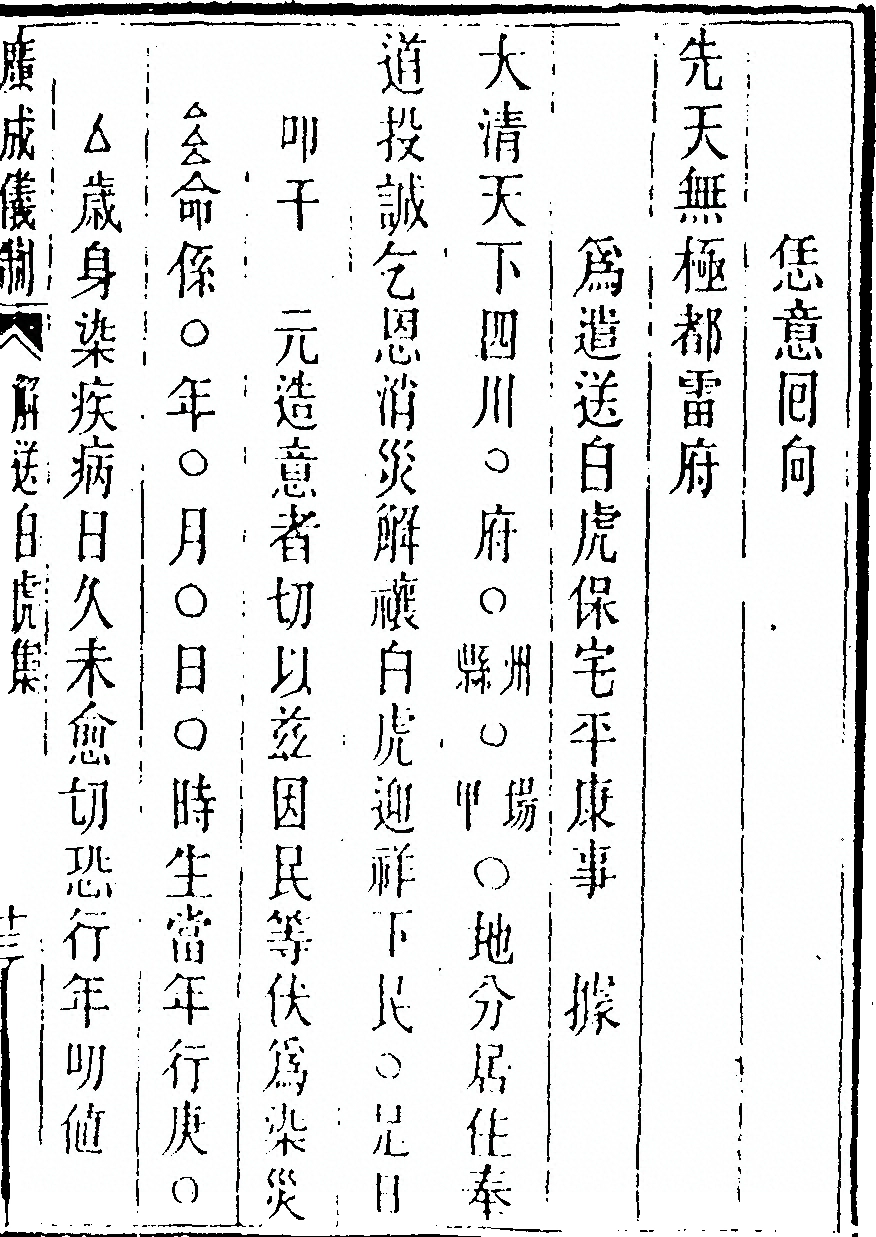 恁意囘向
先天無極都雷府
爲遣送白虎保宅平康事　據
大清天下四川○府○州縣○場甲○地分居住奉
道投誠乞恩消災解禳白虎迎祥下民○是日
叩干　元造意者切以兹因民等伏爲染災
△△△命係○年○月○日○時生當年行庚○
△歲身染疾病日久未愈切恐行年叨值
廣成儀制　解送白虎集　十三